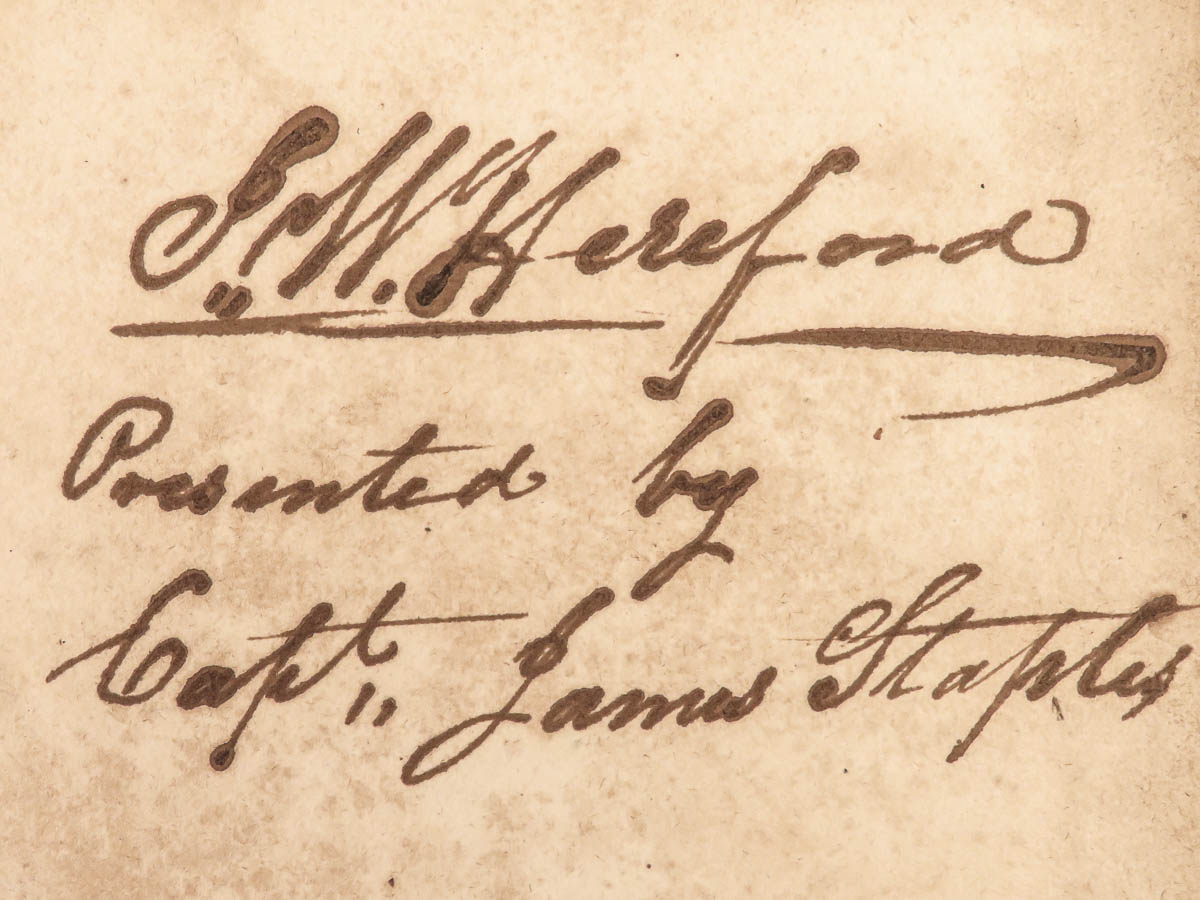 J,, W. Hereford
Presented by
Capt,, James Staples